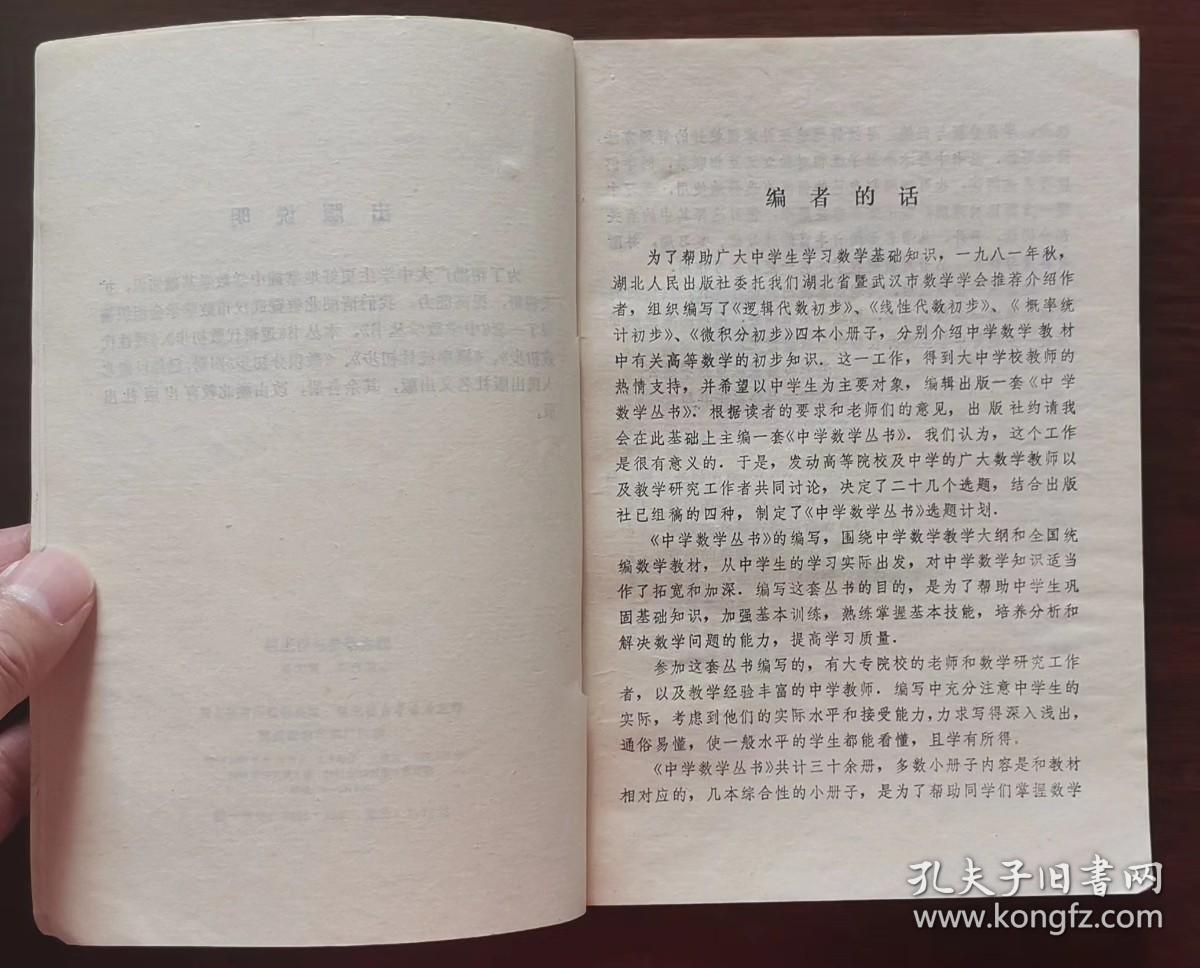 编者的话
为了帮助广大中学生学习数学基础知识，一九八一年秋，
湖北人民出版社委托我们湖北省暨武汉市数学学会推荐介绍作
者，组织编写了《逻辑代数初步》、《线性代数初步》、《概率统
计初步》、《微积分初步》四本小册子，分别介绍中学数学教材
中有关高等数学的初步知识．这一工作，得到大中学校教师的
热情支持，并希望以中学生为主要对象，编辑出版一套《中学
数学丛书》．根据读者的要求和老师们的意见，出版社约请我
会在此基础上主编一套《中学数学丛书》．我们认为，这个工作
是很有意义的．于是，发动高等院校及中学的广大数学教师以
及教学研究工作者共同讨论，决定了二十几个选题，结合出版
社已组稿的四种，制定了《中学数学丛书》选题计划．
《中学数学丛书》的编写，围绕中学数学教学大纲和全国统
编数学教材，从中学生的学习实际出发，对中学数学知识适当
作了拓宽和加深．编写这套丛书的目的，是为了帮助中学生巩
固基础知识，加强基本训练，熟练掌握基本技能，培养分析和
解决数学问题的能力，提高学习质量．
参加这套丛书编写的，有大专院校的老师和数学研究工作
者，以及教学经验丰富的中学教师．编写中充分注意中学生的
实际，考虑到他们的实际水平和接受能力，力求写得深入浅出，
通俗易懂，使一般水平的学生都能看懂，且学有所得．
《中学数学丛书》共计三十余册，多数小册子内容是和教材
相对应的，几本综合性的小册子，是为了帮助同学们掌握数学
孔夫子旧書网
www.kongfz.com